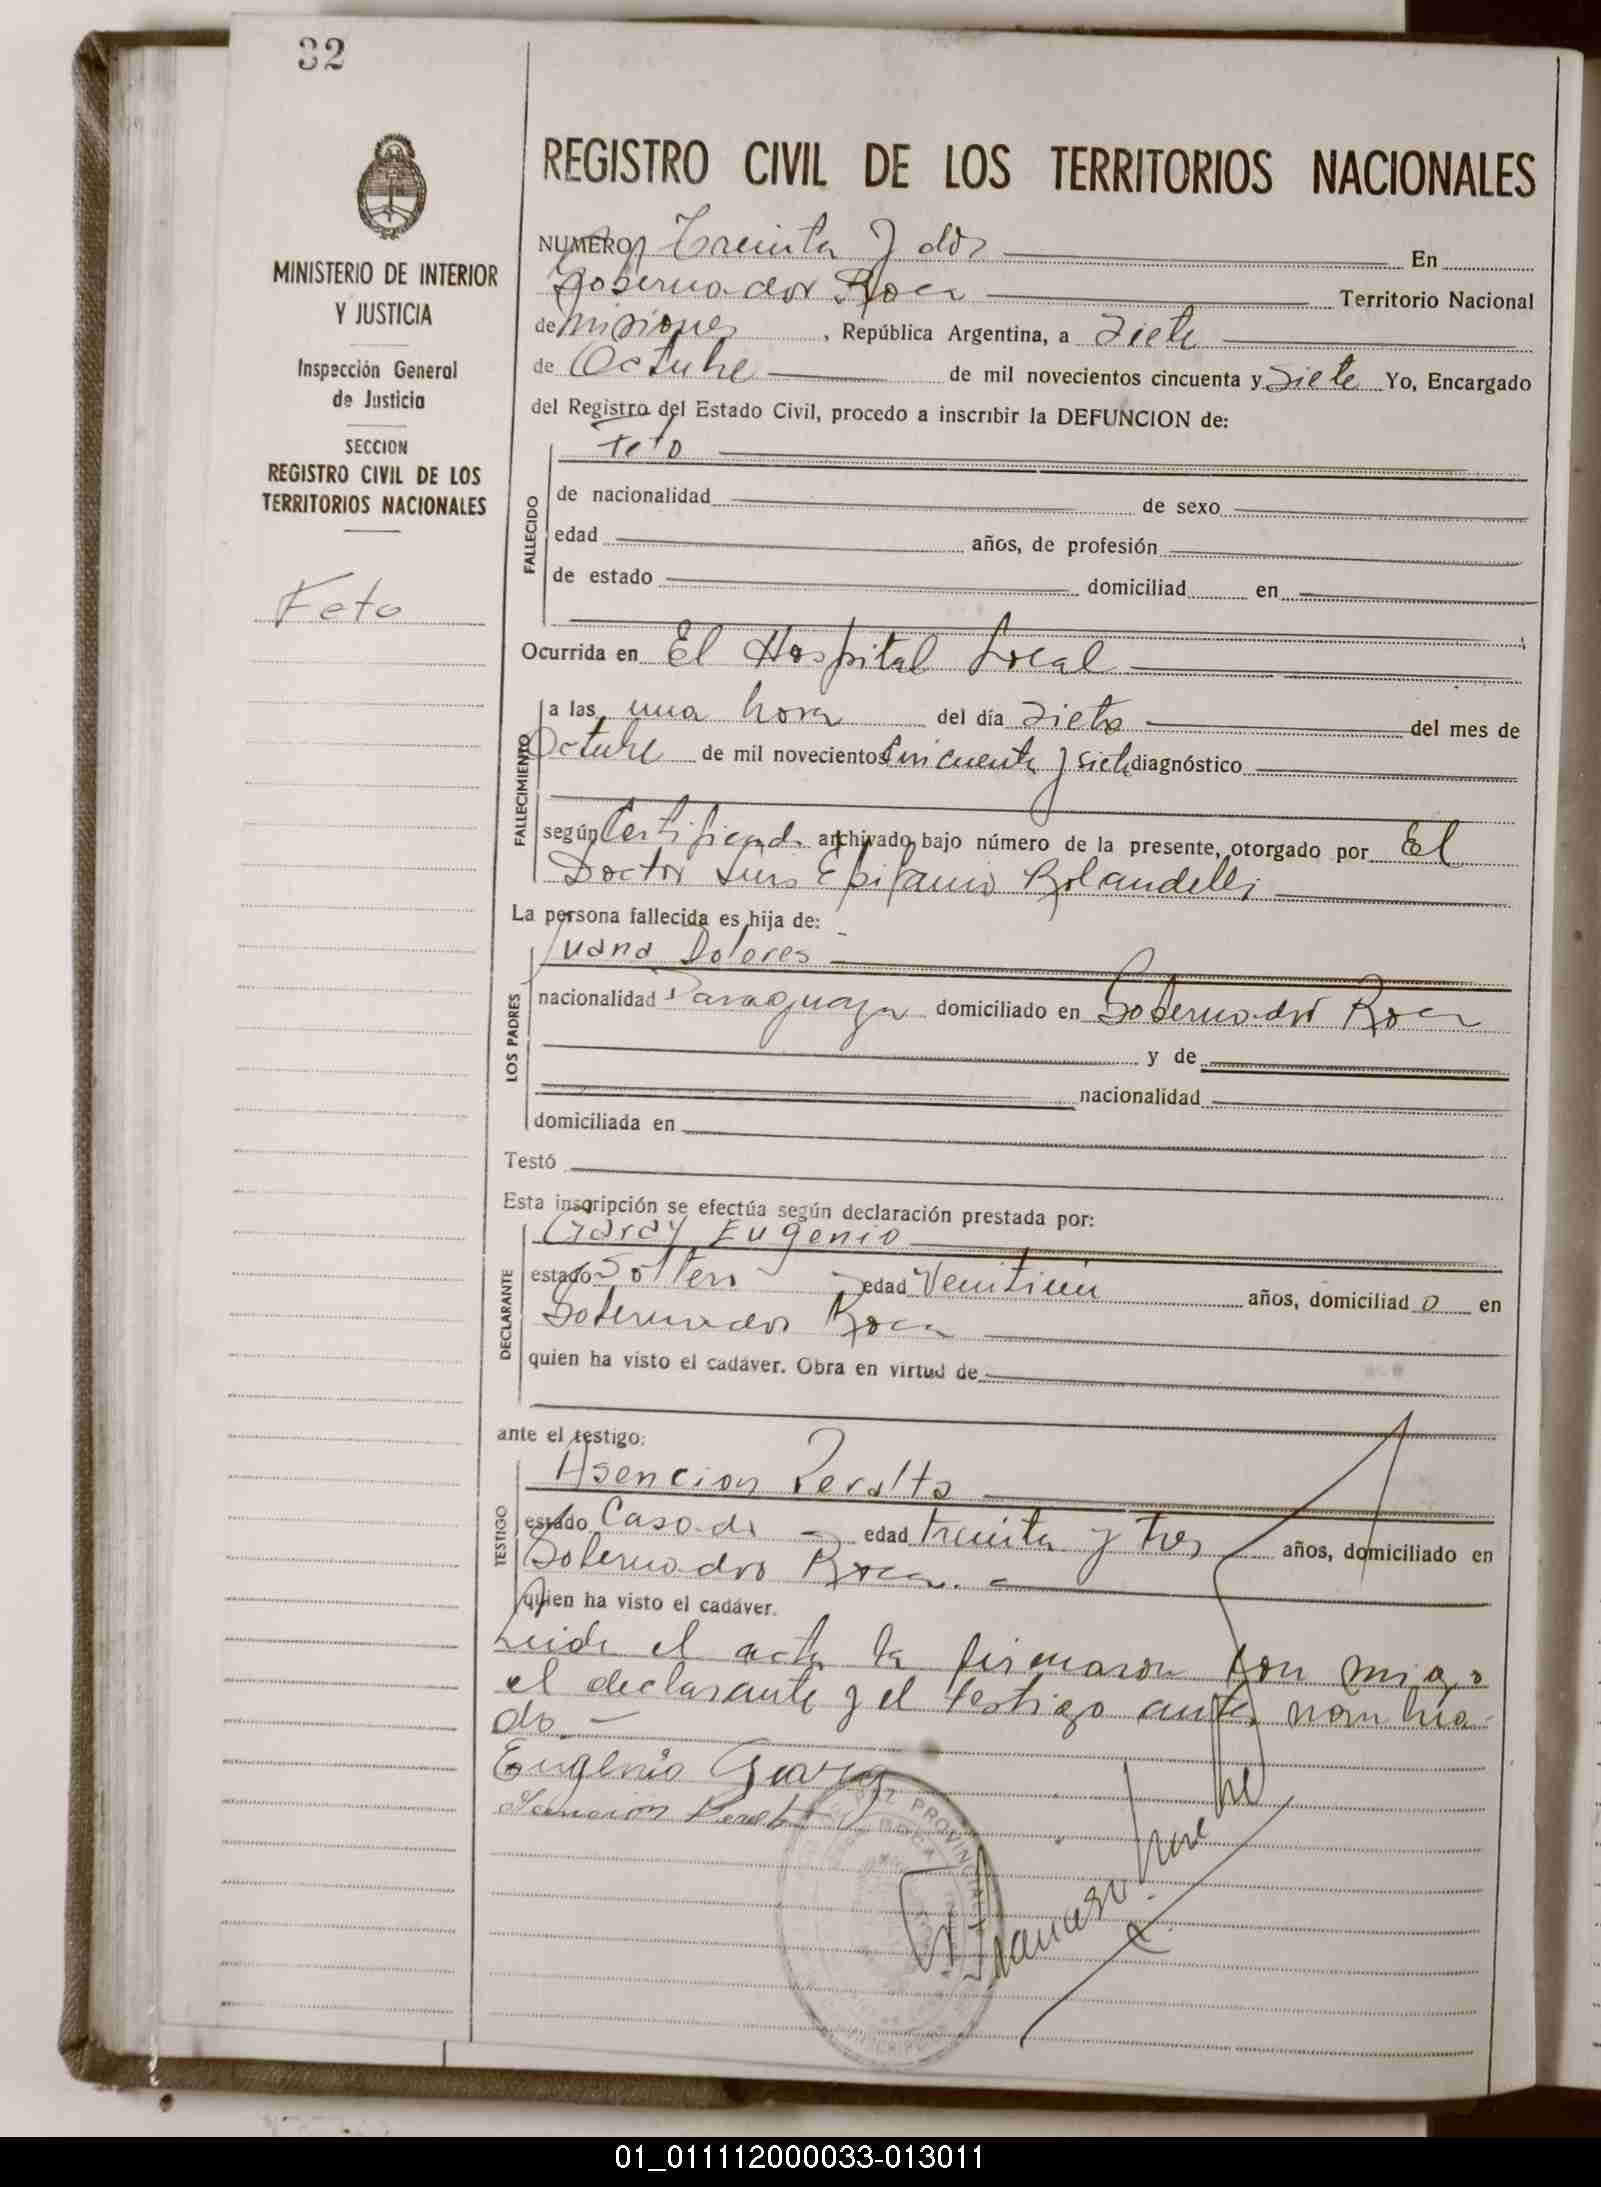 32
MINISTERIO DE INTERIOR
Y JUSTICIA
Inspección General
de Justicia
SECCION
REGISTRO CIVIL DE LOS
TERRITORIOS NACIONALES
Feto
REGISTRO CIVIL DE LOS TERRITORIOS NACIONALES
NUMERO Treinta y dos En
Gobernador Roca Territorio Nacional
de Misiones, República Argentina, a Siete
de Octubre de mil novecientos cincuenta y Siete Yo, Encargado
del Registro del Estado Civil, procedo a inscribir la DEFUNCION de:
Feto
FALLECIDO
de nacionalidad de sexo
edad años, de profesión
de estado domiciliad en
Ocurrida en El Hospital Local
FALLECIMIENTO
a las una hora del día Siete del mes de
Octubre de mil novecientos Cincuenta y siete diagnóstico
según Certificado archivado bajo número de la presente, otorgado por El
Doctor Luis Epifanio Rolandelli
La persona fallecida es hija de:
LOS PADRES
Juana Dolores
nacionalidad Paraguaya domiciliado en Gobernador Roca
y de
nacionalidad
domiciliada en
Testó
Esta inscripción se efectúa según declaración prestada por:
DECLARANTE
Garay Eugenio
estado Soltero edad Veintiun años, domiciliad o en
Gobernador Roca
quien ha visto el cadáver. Obra en virtud de
ante el testigo:
TESTIGO
Asencion Peralta
estado Casado edad treinta y tres años, domiciliado en
Gobernador Roca.
quien ha visto el cadáver.
Leida el acta la firmaron con migo
el declarante y el testigo antes nombra
do.-
Eugenio Garay
Asencion Peralta
PAZ PROVINCIAL
ROCA
Francisco
01_011112000033-013011